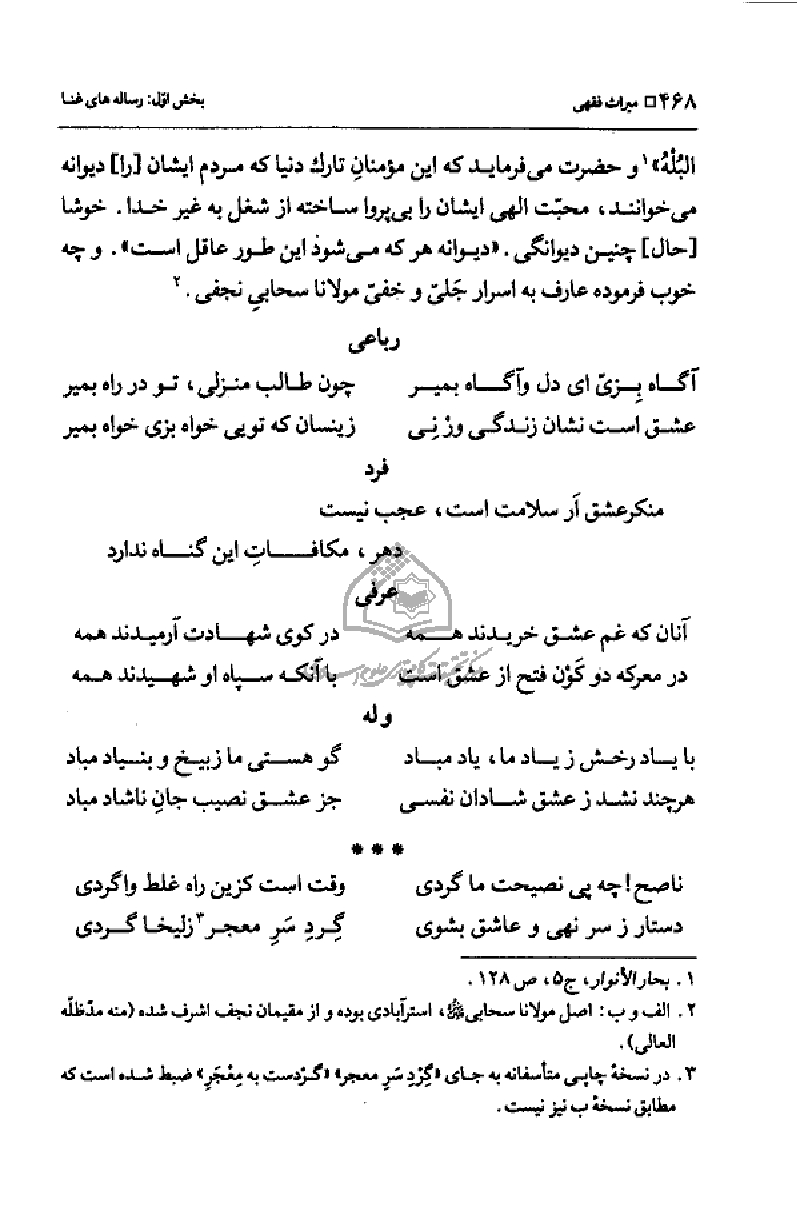 ۴۶۸ □ میراث فقهی بخش اوّل: رساله های غنا
البُلْهُ»۱ و حضرت می‌فرمایـد که این مؤمنانِ تارك دنیا که مـردم ایشان [را] دیوانه
می‌خواننـد، محبّت الهی ایشان را بی‌پروا ساخته از شغل به غیر خـدا. خوشا
[حال] چنیـن دیوانگی. «دیـوانه هر که مـی‌شوذ این طـور عاقل اسـت». و چه
خوب فرموده عارف به اسرار جَلیّ و خفیّ مولانا سحابیِ نجفی.۲
رباعی
آگـاه بِـزیّ ای دل وآگـاه بمیـر چون طـالب منـزلی، تـو در راه بمیر
عشـق اسـت نشان زنـدگـی ورْ نِـی زینسان که تویی خواه بزی خواه بمیر
فرد
منکرعشق اَر سلامت است، عجب نیست
دهر، مکافـاتِ این گنـاه ندارد
عرفی
آنان که غم عشـق خریـدند همـه در کوی شهـادت آرمیـدند همه
در معرکه دو کَوْن فتح از عشق است با آنکـه سـپاه او شهـیدند همـه
وله
با یـاد رخـش ز یـاد ما، یاد مبـاد گو هستـی ما ز بیـخ و بنـیاد مباد
هرچند نشـد ز عشق شـادان نفسـی جز عشـق نصیب جانِ ناشاد مباد
* * *
ناصح! چه پی نصیحت ما گردی وقت است کزین راه غلط واگردی
دستار ز سر نهی و عاشق بشوی گِـردِ سَرِ معجـر۳ زلیخـا گـردی
۱. بحار الأنوار، ج۵، ص ۱۲۸.
۲. الف و ب: اصل مولانا سحابی، استرآبادی بوده و از مقیمان نجف اشرف شده (منه مدّظلّه
العالی).
۳. در نسخهٔ چاپی متأسفانه به جای «گِرْدِ سَرِ معجر» «گَرْدست به مِعْجَرِ» ضبط شده است که
مطابق نسخهٔ ب نیز نیست.